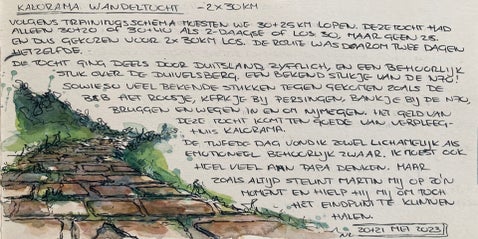 KALORAMA WANDELTOCHT - 2x30KM
VOLGENS TRAININGSSCHEMA MOESTEN WE 30+25KM LOPEN. DEZE TOCHT HAD
ALLEEN 30+20 OF 30+40 ALS 2-DAAGSE OF LOS 30, MAAR GEEN 25.
EN DUS GEKOZEN VOOR 2x30KM LOS. DE ROUTE WAS DAAROM TWEE DAGEN
HETZELFDE.
DE TOCHT GING DEELS DOOR DUITSLAND, ZYFFLICH, EN EEN BEHOORLIJK
STUK OVER DE DUIVELSBERG. EEN BEKEND STUKJE VAN DE N70!
SOWIESO VEEL BEKENDE STUKKEN TEGEN GEKOMEN ZOALS DE
B&B HET ROOSJE, KERKJE BIJ PERSINGEN, BANKJE BIJ DE N70,
BRUGGEN EN WEGEN IN EN OM NIJMEGEN. HET GELD VAN
DEZE TOCHT KOMT TEN GOEDE VAN VERPLEEG-
THUIS KALORAMA.
DE TWEEDE DAG VOND IK ZOWEL LICHAMELIJK ALS
EMOTIONEEL BEHOORLIJK ZWAAR. IK MOEST OOK
HEEL VEEL AAN PAPA DENKEN. MAAR
ZOALS ALTIJD STEUNT MARTIN MIJ OP ZO'N
MOMENT EN HIELP HIJ MIJ OM TOCH
HET EINDPUNT TE KUNNEN
HALEN.
20+21 MEI 2023